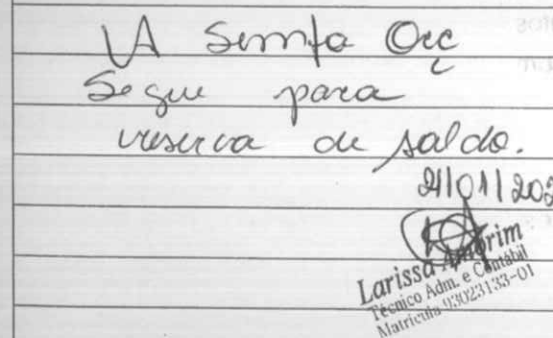 A Semfa Orç
Segue para
reserva de saldo.
21/01/202
Larissa Amorim
Técnico Adm. e Contábil
Matrícula 93023133-01